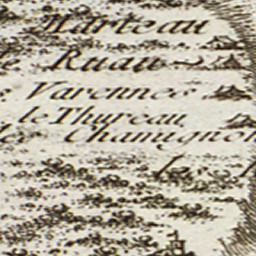 Marteau
Ruau
Varennes
le Thureau
Chamignon
les